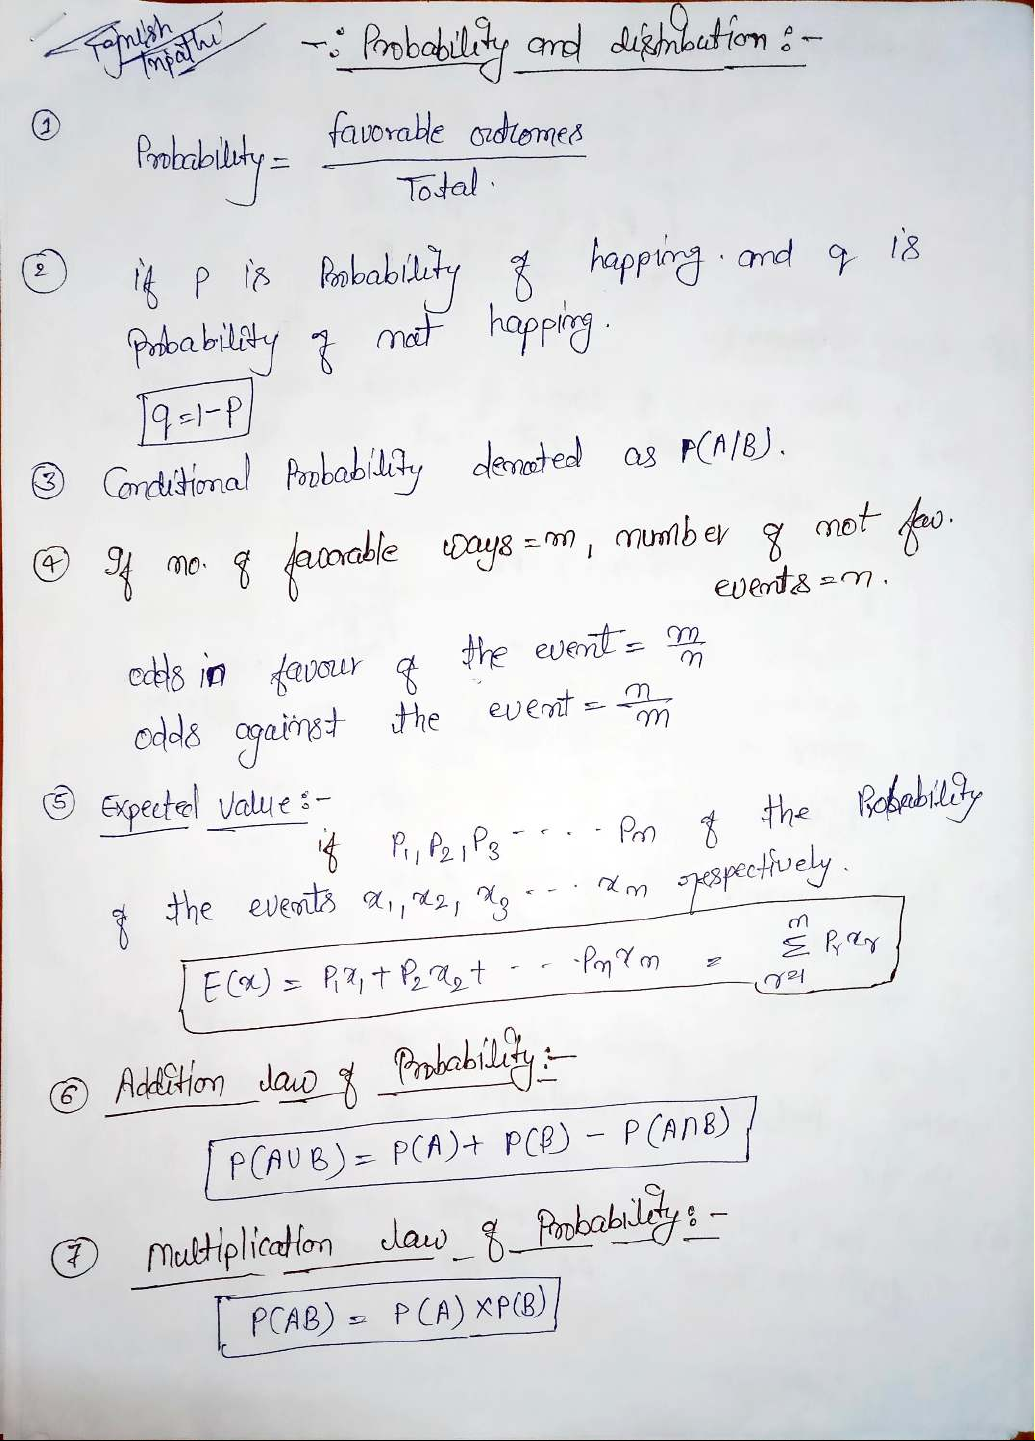 Tripathi
-: Probability and distribution :-
① Probability = favorable outcomes / Total.
② if p is Probability of happing. and q is
Probability of not happing.
q=1-P
③ Conditional Probability denoted as P(A/B).
④ If no. of favorable ways = m, number of not fav.
events = n.
odds in favour of the event = m/n
odds against the event = n/m
⑤ Expected Value :-
if P₁, P₂, P₃ ---- Pn of the Probability
of the events x₁, x₂, x₃ --- xn respectively.
E(x) = P₁x₁ + P₂x₂ + --- Pnxn = n Σ r=1 Pr xr
⑥ Addition law of Probability :-
P(A∪B) = P(A) + P(B) - P(A∩B)
⑦ Multiplication law of Probability :-
P(AB) = P(A) × P(B)